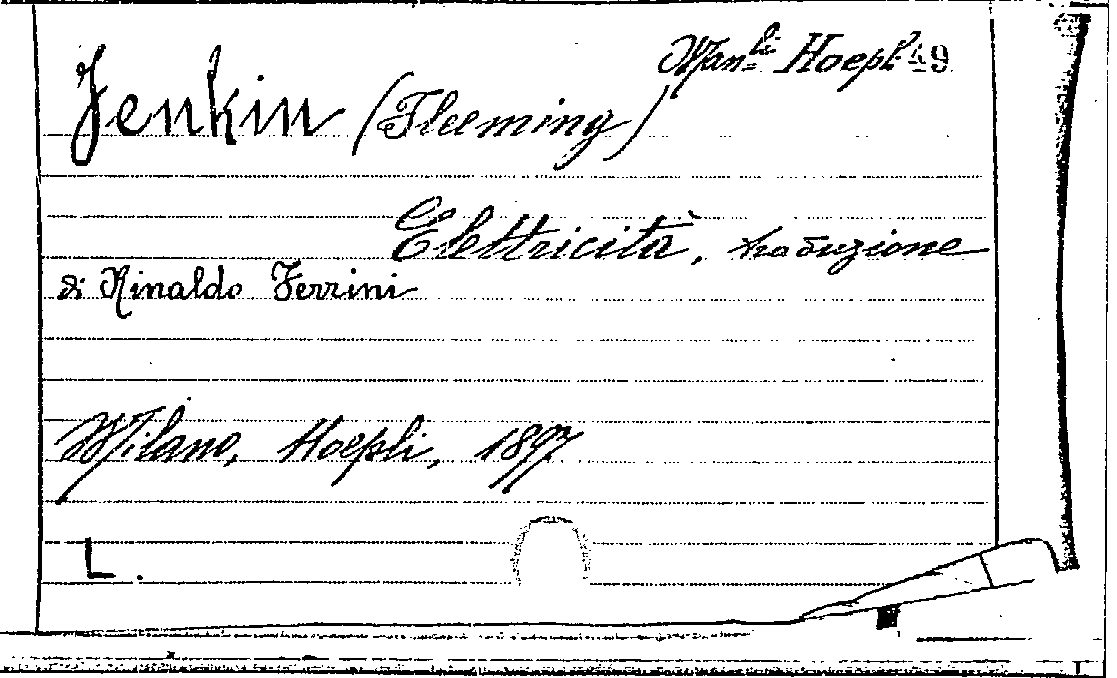 Man.li Hoepl. 49
Jenkin (Fleeming)
Elettricità, traduzione
di Rinaldo Ferrini
Milano, Hoepli, 1897
L.